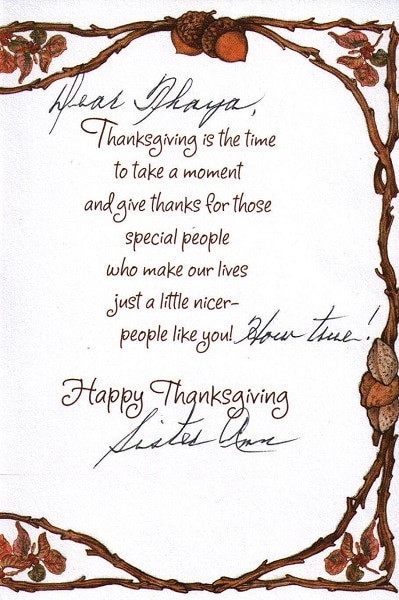 Dear Thaya,
Thanksgiving is the time
to take a moment
and give thanks for those
special people
who make our lives
just a little nicer-
people like you! How true!
Happy Thanksgiving
Sister Ann